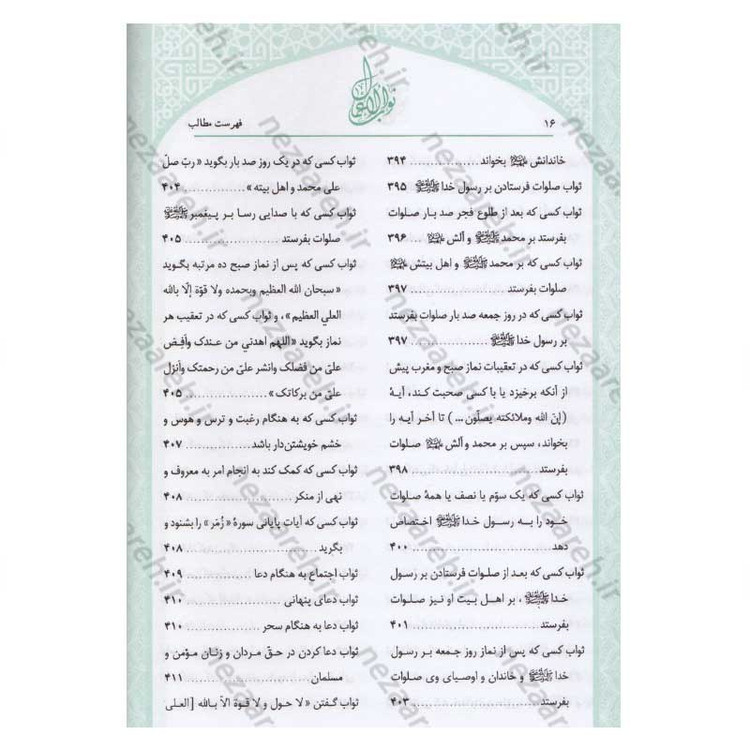 ثواب الاعمال
۱۶
فهرست مطالب
خاندانش بخواند ................. ۳۹۴
ثواب صلوات فرستادن بر رسول خدا ۳۹۵
ثواب کسی که بعد از طلوع فجر صد بار صلوات
بفرستد بر محمد و آلش ... ۳۹۶
ثواب کسی که بر محمد و اهل بیتش
صلوات بفرستد ................. ۳۹۷
ثواب کسی که در روز جمعه صد بار صلوات بفرستد
بر رسول خدا ................. ۳۹۷
ثواب کسی که در تعقیبات نماز صبح و مغرب پیش
از آنکه برخیزد یا با کسی صحبت کند، آیهٔ
(إنّ الله وملائکته یصلّون ...) تا آخر آیه را
بخواند، سپس بر محمد و آلش صلوات
بفرستد ................. ۳۹۸
ثواب کسی که یک سوّم یا نصف یا همهٔ صلوات
خود را به رسول خدا اختصاص
دهد ................. ۴۰۰
ثواب کسی که بعد از صلوات فرستادن بر رسول
خدا ، بر اهل بیت او نیز صلوات
بفرستد ................. ۴۰۱
ثواب کسی که پس از نماز روز جمعه بر رسول
خدا و خاندان و اوصیای وی صلوات
بفرستد ................. ۴۰۳
ثواب کسی که در یک روز صد بار بگوید « ربّ صلّ
علی محمد و اهل بیته » ................. ۴۰۴
ثواب کسی که با صدایی رسا بر پیغمبر
صلوات بفرستد ................. ۴۰۵
ثواب کسی که پس از نماز صبح ده مرتبه بگوید
« سبحان الله العظیم وبحمده ولا قوّة إلّا بالله
العلي العظیم » ، و ثواب کسی که در تعقیب هر
نماز بگوید « اللهم اهدني من عندك وأفِض
عليّ من فضلك وانشر عليّ من رحمتك وأنزل
عليّ من برکاتك » ................. ۴۰۵
ثواب کسی که به هنگام رغبت و ترس و هوس و
خشم خویشتن‌دار باشد ................. ۴۰۷
ثواب کسی که کمک کند به انجام امر به معروف و
نهی از منکر ................. ۴۰۸
ثواب کسی که آیات پایانی سورهٔ « زُمَر » را بشنود و
بگرید ................. ۴۰۸
ثواب اجتماع به هنگام دعا ................. ۴۰۹
ثواب دعای پنهانی ................. ۴۱۰
ثواب دعا به هنگام سحر ................. ۴۱۰
ثواب دعا کردن در حقّ مردان و زنان مؤمن و
مسلمان ................. ۴۱۱
ثواب گفتن « لا حول و لا قوة الاّ بالله [العلی
nezaareh.ir